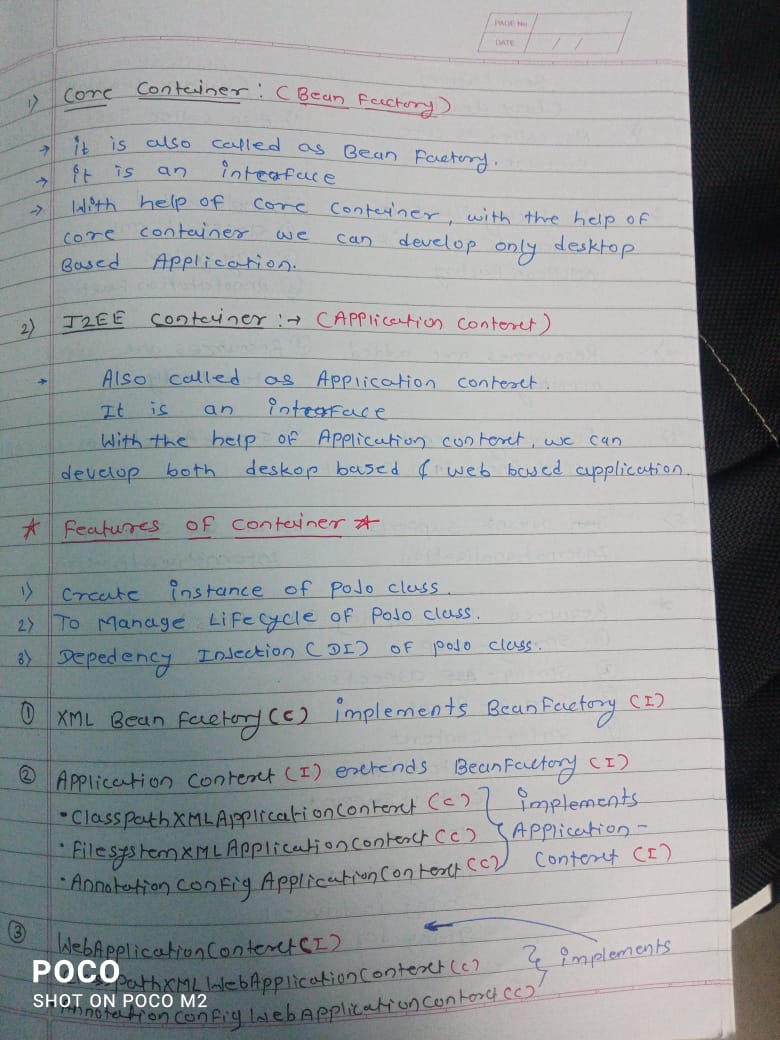 PAGE No.
DATE / /
1) Core Container : (Bean Factory)
→ it is also called as Bean Factory.
→ it is an interface
→ With help of core container, with the help of
core container we can develop only desktop
Based Application.
2) J2EE Container :→ (Application Context)
→ Also called as Application context.
It is an interface
With the help of Application context, we can
develop both deskop based & web based application.
* Features of Container *
1) Create instance of POJO class.
2) To Manage Lifecycle of POJO class.
3) Depedency Injection (DI) of pojo class.
① XML Bean Factory (C) implements BeanFactory (I)
② Application Context (I) extends BeanFactory (I)
• ClassPathXMLApplicationContext (C) } implements
• FilesystemXMLApplicationContext (C) Application-
• Annotation Config ApplicationContext (C) Context (I)
③ WebApplicationContext (I)
pathXMLWebApplicationContext (C) } implements
AnnotationConfigWebApplicationContext (C)
POCO
SHOT ON POCO M2